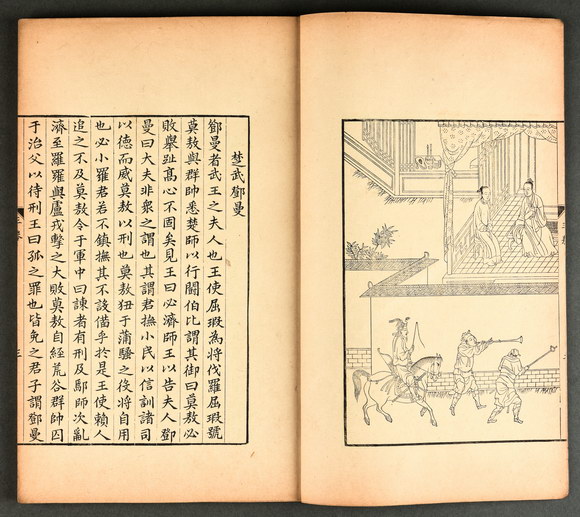 楚武鄧曼
鄧曼者武王之夫人也王使屈瑕為將伐羅屈瑕號
莫敖與群帥悉楚師以行鬬伯比謂其御曰莫敖必
敗舉趾高心不固矣見王曰必濟師王以告夫人鄧
曼曰大夫非衆之謂也其謂君撫小民以信訓諸司
以德而威莫敖以刑也莫敖狃于蒲騷之役將自用
也必小羅君若不鎮撫其不設備乎於是王使賴人
追之不及莫敖令于軍中曰諫者有刑及鄢師次亂
濟至羅羅與盧戎擊之大敗莫敖自經荒谷群帥囚
于治父以待刑王曰孤之罪也皆免之君子謂鄧曼
三